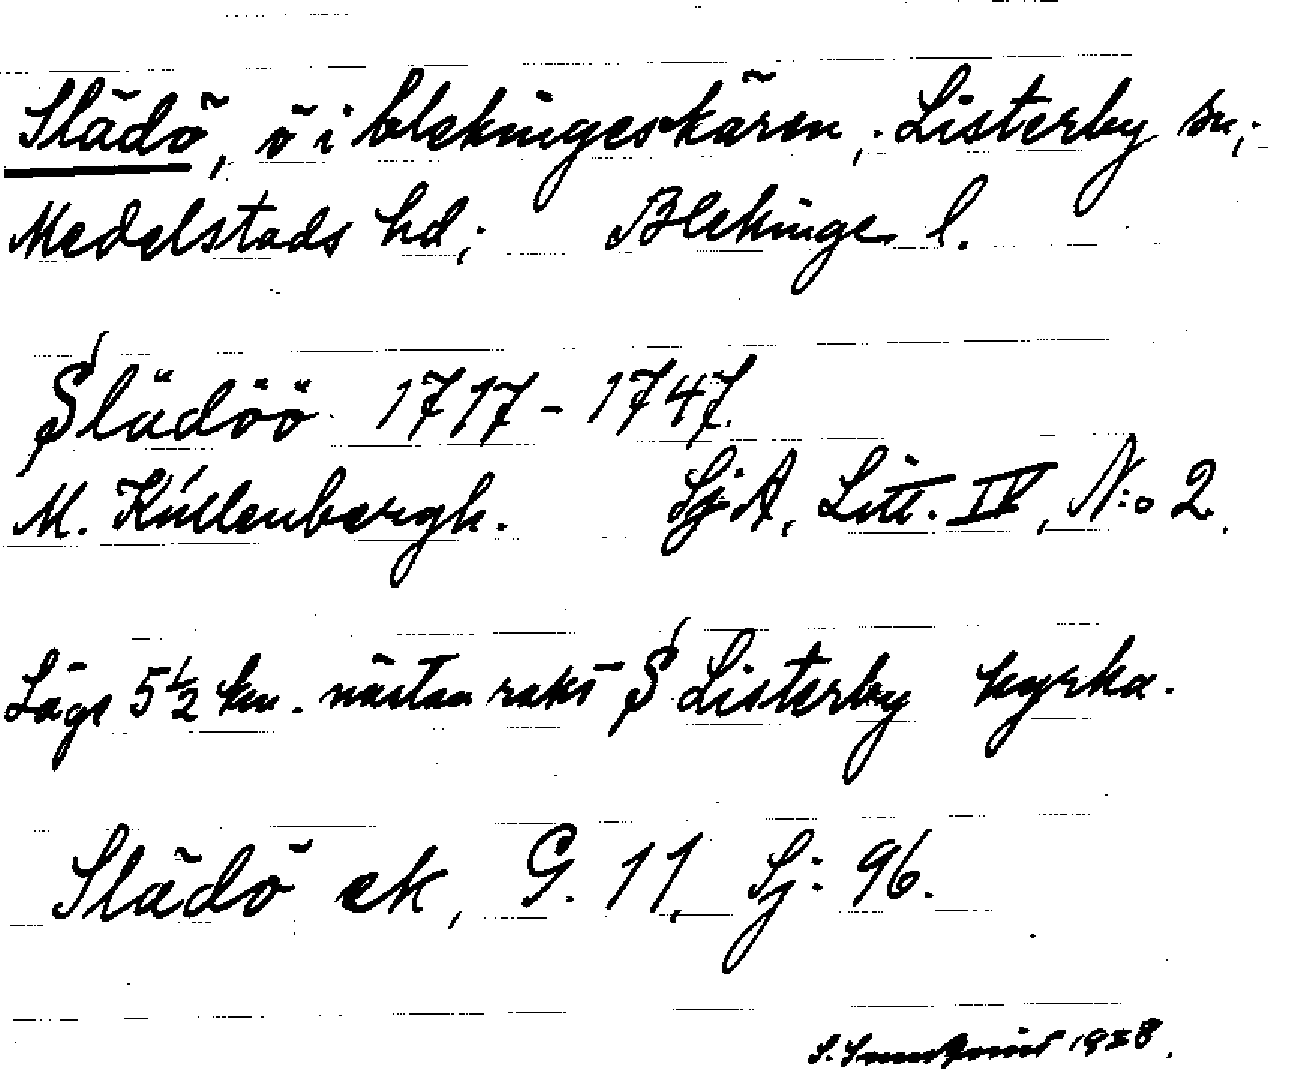 Slädö, ö i blekingeskären; Listerby sn;
Medelstads hd; Blekinge l.
Slädöö 1717-1747.
M. Küllenbergh. Sj A, Litt. IV, N:o 2.
Läge 5½ km. nästan rakt S Listerby kyrka.
Slädö ek, G. 11, Sj: 96.
S. 1928.